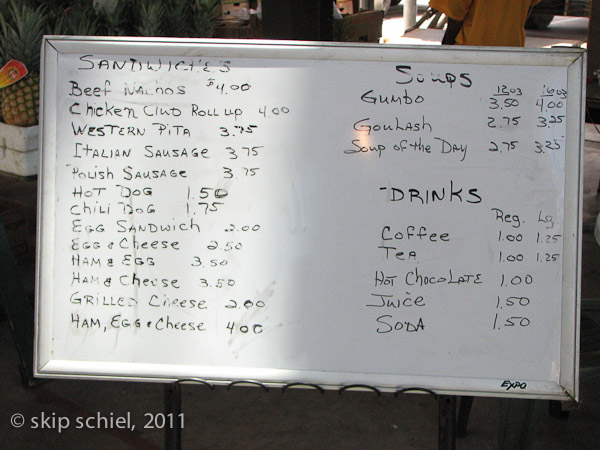 SANDWICHES
Beef Nachos $4.00
Chicken Club Roll up 4.00
WESTERN PITA 3.75
ITALIAN SAUSAGE 3.75
Polish SAUSAGE 3.75
HOT DOG 1.50
CHILI DOG 1.75
EGG SANDWICH 2.00
EGG & CHEESE 2.50
HAM & EGG 3.50
HAM & CHEESE 3.50
GRILLED CHEESE 2.00
HAM, EGG & CHEESE 4.00
SOUPS
12oz 16oz
GUMBO 3.50 4.00
GOULASH 2.75 3.25
SOUP OF THE DAY 2.75 3.25
DRINKS
Reg. Lg.
COFFEE 1.00 1.25
TEA 1.00 1.25
HOT CHOCOLATE 1.00
JUICE 1.50
SODA 1.50
EXPO
© skip schiel, 2011